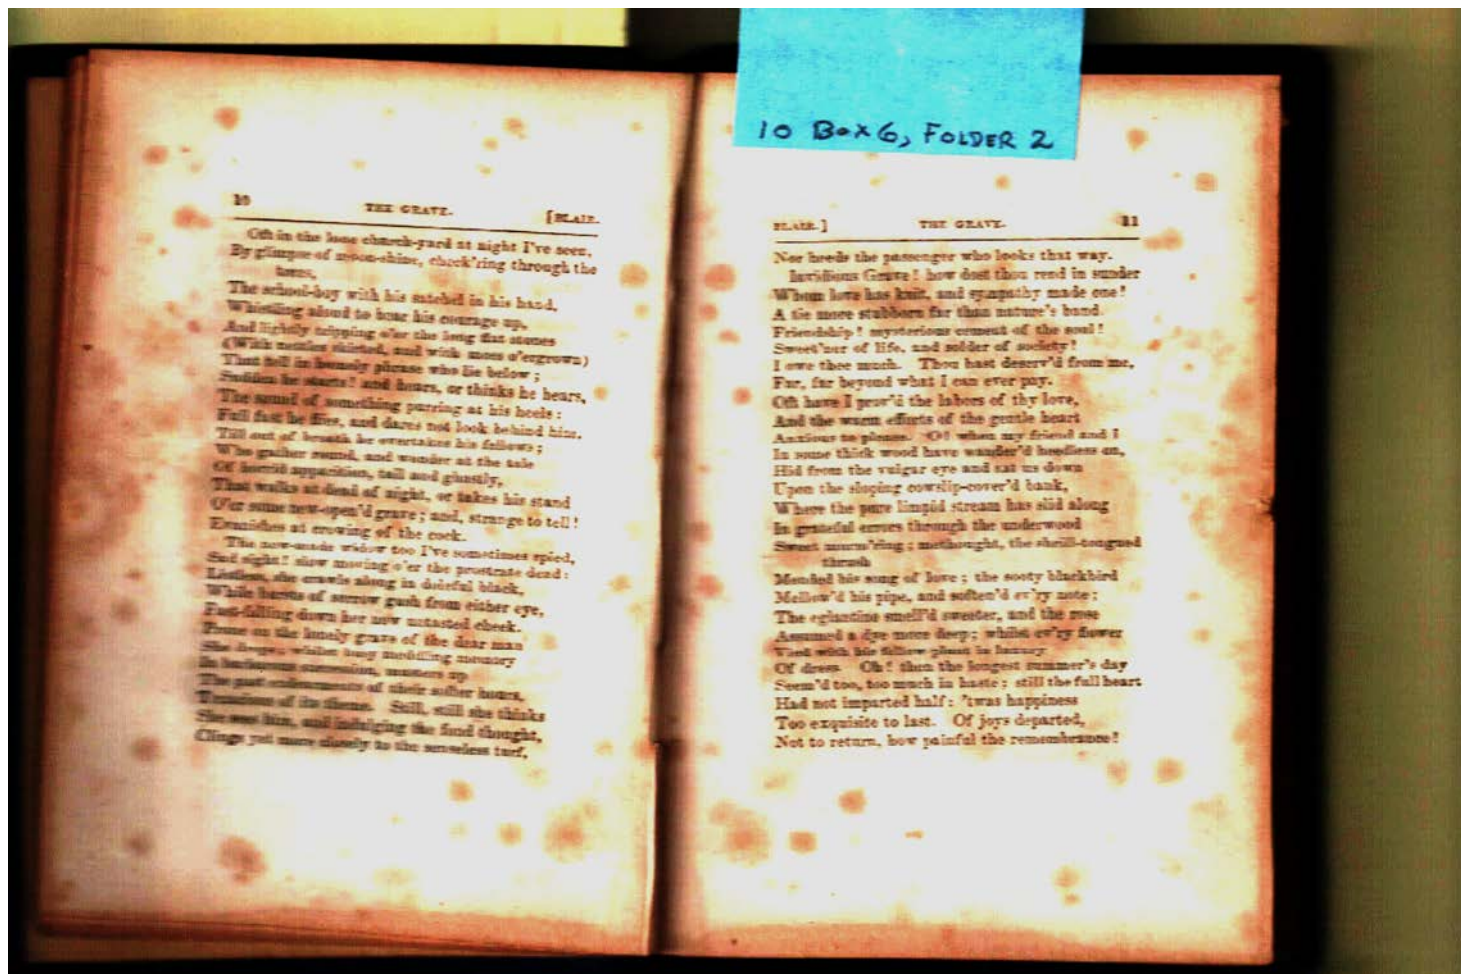 10 BOX 6, FOLDER 2
10 THE GRAVE. [BLAIR.
Oft in the lone church-yard at night I've seen,
By glimpse of moon-shine, check'ring through the
trees,
The school-boy with his satchel in his hand,
Whistling aloud to bear his courage up,
And lightly tripping o'er the long flat stones
(With nettles skirted, and with moss o'ergrown)
That tell in homely phrase who lie below;
Sudden he starts! and hears, or thinks he hears,
The sound of something purring at his heels:
Full fast he flies, and dares not look behind him,
Till out of breath he overtakes his fellows;
Who gather round, and wonder at the tale
Of horrid apparition, tall and ghastly,
That walks at dead of night, or takes his stand
O'er some new-open'd grave; and, strange to tell!
Evanishes at crowing of the cock.
The new-made widow too I've sometimes spied,
Sad sight! slow moving o'er the prostrate dead:
Listless, she crawls along in doleful black,
While bursts of sorrow gush from either eye,
Fast-falling down her now untasted cheek.
Prone on the lonely grave of the dear man
She drops; whilst busy meddling memory
In barbarous succession, musters up
The past endearments of their softer hours,
Tenacious of its theme. Still, still she thinks
She sees him, and indulging the fond thought,
Clings yet more closely to the senseless turf,
BLAIR.] THE GRAVE. 11
Nor heeds the passenger who looks that way.
Invidious Grave! how dost thou rend in sunder
Whom love has knit, and sympathy made one!
A tie more stubborn far than nature's band.
Friendship! mysterious cement of the soul!
Sweet'ner of life, and solder of society!
I owe thee much. Thou hast deserv'd from me,
Far, far beyond what I can ever pay.
Oft have I prov'd the labors of thy love,
And the warm efforts of the gentle heart
Anxious to please. O! when my friend and I
In some thick wood have wander'd heedless on,
Hid from the vulgar eye and sat us down
Upon the sloping cowslip-cover'd bank,
Where the pure limpid stream has slid along
In grateful errors through the underwood
Sweet murm'ring; methought, the shrill-tongued
thrush
Mended his song of love; the sooty blackbird
Mellow'd his pipe, and soften'd ev'ry note;
The eglantine smell'd sweeter, and the rose
Assumed a dye more deep; whilst ev'ry flower
Vied with his fellow plant in luxury
Of dress. Oh! then the longest summer's day
Seem'd too, too much in haste; still the full heart
Had not imparted half: 'twas happiness
Too exquisite to last. Of joys departed,
Not to return, how painful the remembrance!